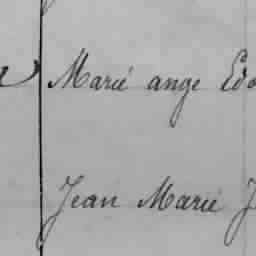 Marie ange
Jean Marie